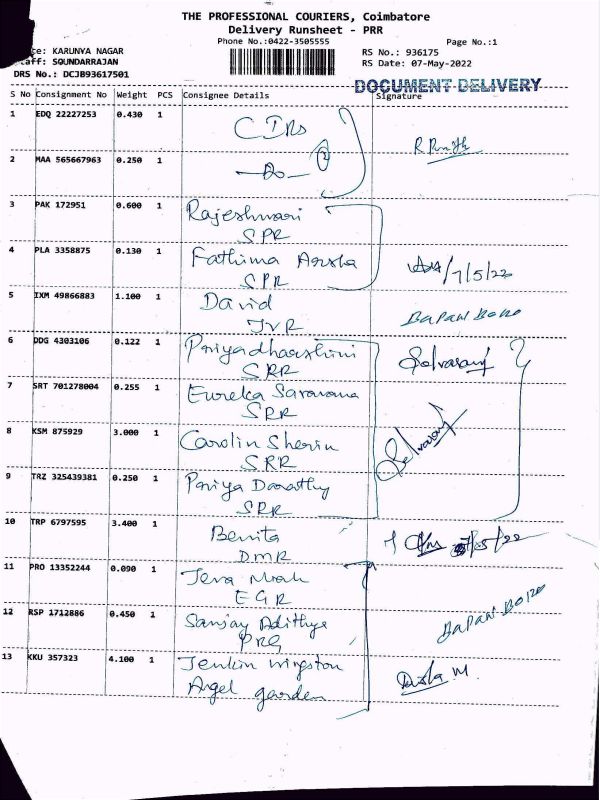 THE PROFESSIONAL COURIERS, Coimbatore
Delivery Runsheet - PRR
Phone No.:0422-3505555
Page No.:1
ce: KARUNYA NAGAR
RS No.: 936175
taff: SOUNDARRAJAN
RS Date: 07-May-2022
DRS No.: DCJB93617501
DOCUMENT DELIVERY
S No Consignment No Weight PCS Consignee Details Signature
1 EDQ 22227253 0.430 1 CIRs
2 MAA 565667963 0.250 1 -Do-
3 PAK 172951 0.600 1 Rajeshwari
SPR
4 PLA 3358875 0.130 1 Fathima Arsha
SPR 7/5/22
5 IXM 49866883 1.100 1 David BAPAN BORO
JVR
6 DDG 4303106 0.122 1 Priyadharshini Selvaraj
SRR
7 SRT 701278004 0.255 1 Eureka Saravana
SRR
8 KSM 875929 3.000 1 Carolin Sherin Selvaraj
SRR
9 TRZ 325439381 0.250 1 Priya
SRR
10 TRP 6797595 3.400 1 Benita
DMR
11 PRO 13352244 0.090 1 Jeva
EGR
12 RSP 1712886 0.450 1 Sanjay Adithya BAPAN BORO
PRG
13 KKU 357323 4.100 1 Jenkin wingston
Angel garden